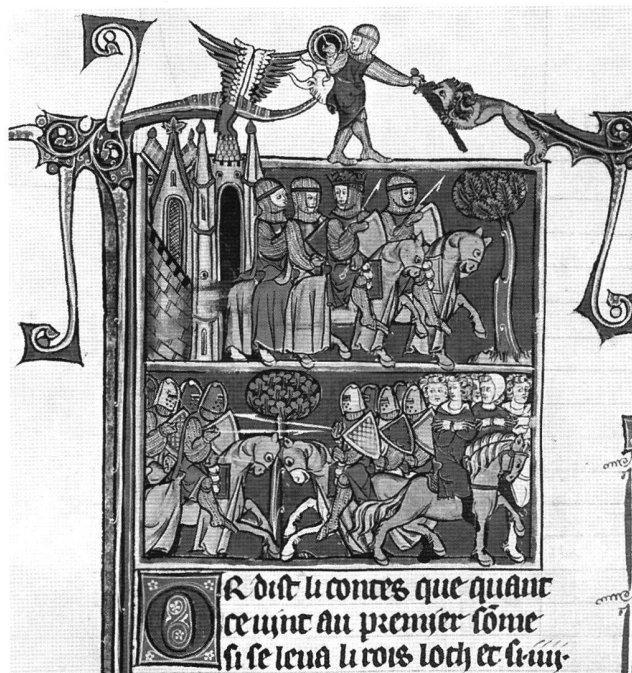 OR dist li contes que quant
ce uint au premier sõme
si se leua li rois loth et si·iiij·